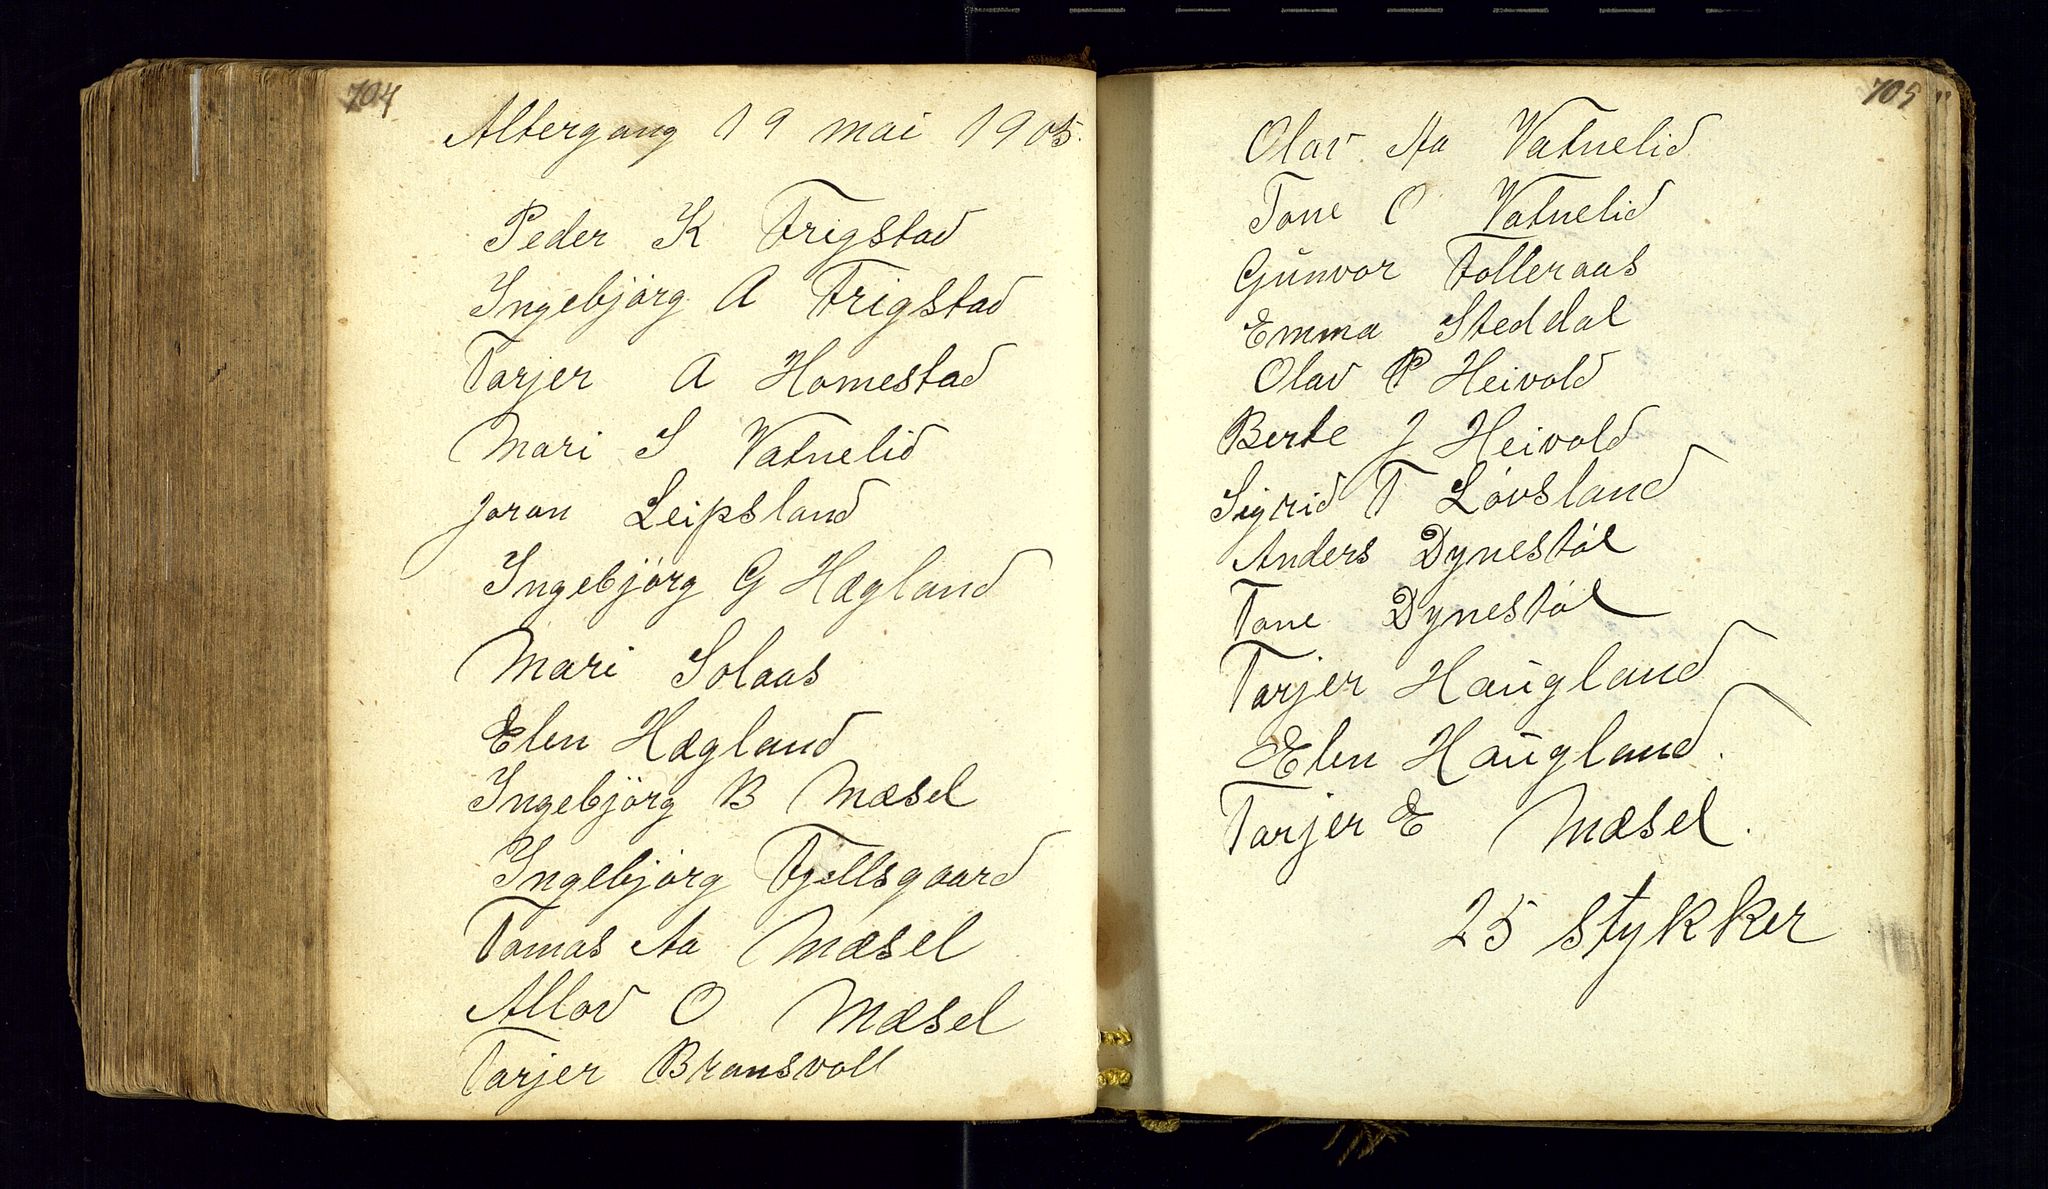 704
Altergang 19 mai 1905.
Peder K Frigstad
Ingebjørg A Frigstad
Tarjer A Homestad
Mari S Vatnelid
Joran Leipsland
Ingebjørg G Hægland
Mari Solaas
Elen Hægland
Ingebjørg B Mæsel
Ingebjørg Fjellsgaard
Tomas Aa Mæsel
Allov O Mæsel
Tarjer Bransvoll
705
Olav Aa Vatnelid
Tone O Vatnelid
Gŭnvor Tolleraas
Emma Steddal
Olav P Heivold
Berte J Heivold
Sigrid T Løvsland
Anders Dynestøl
Tone Dynestøl
Tarjer Haŭgland
Elen Haŭgland.
Tarjer E Mæsel.
25 stykker